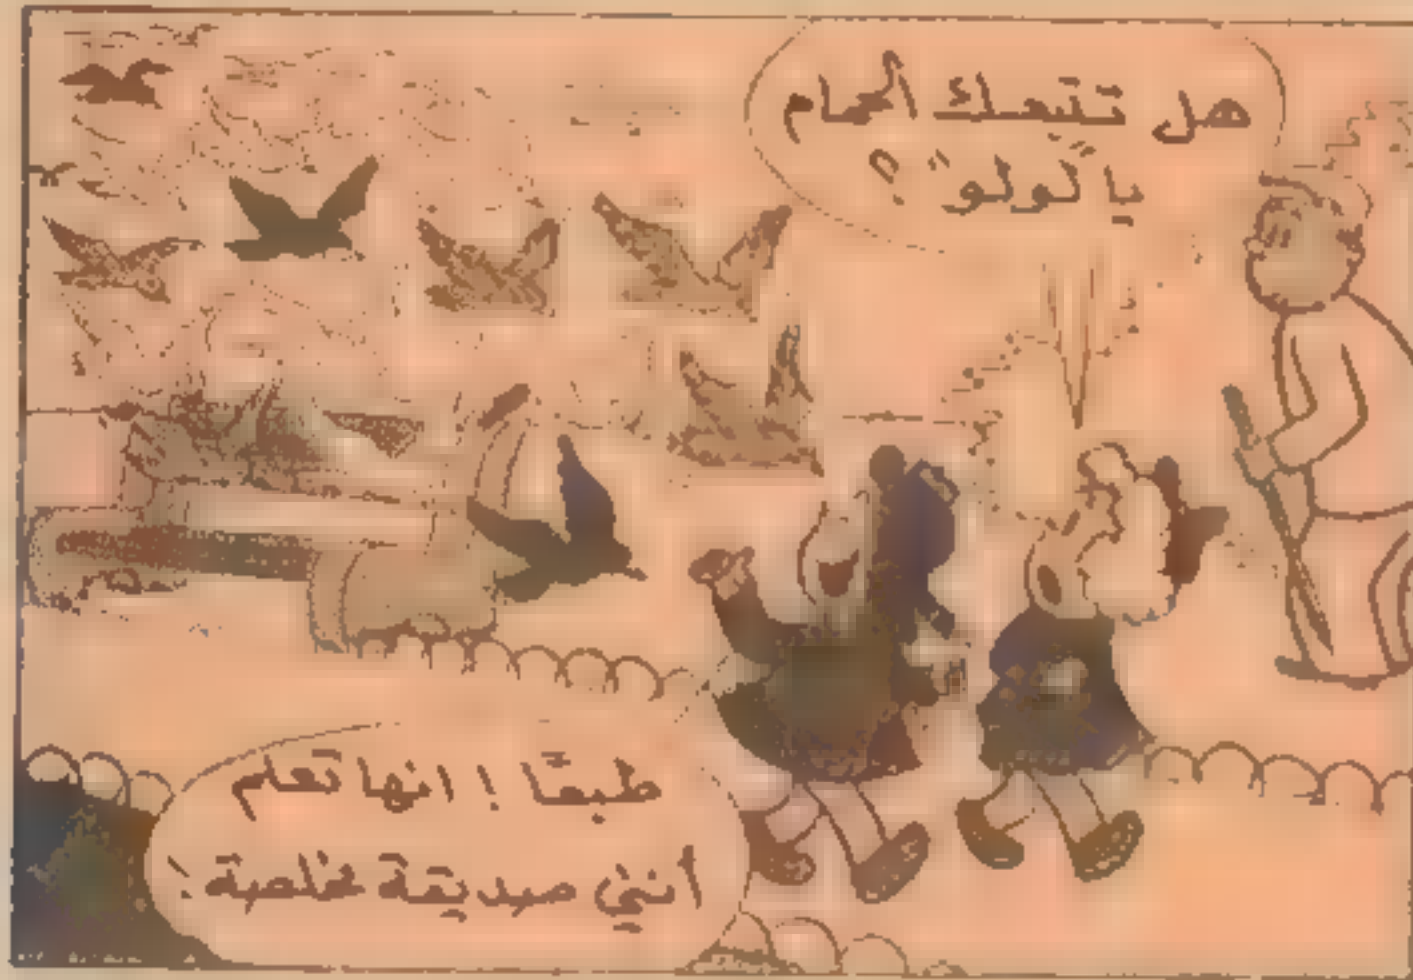 هل تتبعك الحمام
يا "لولو" ؟
طبعًا ! انها تعلم
أنني صديقة مخلصة !